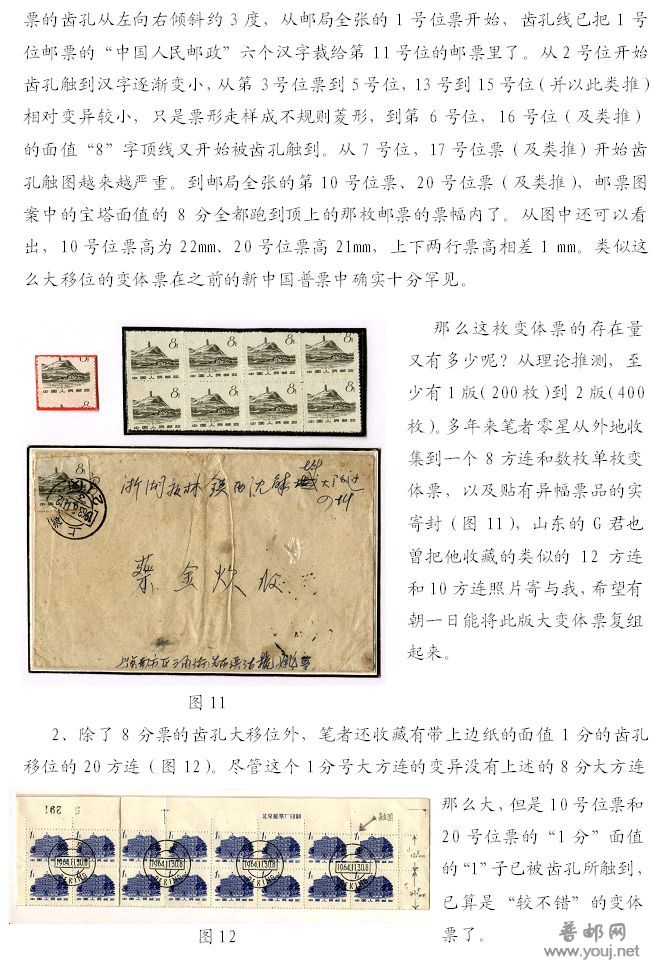 票的齿孔从左向右倾斜约3度，从邮局全张的1号位票开始，齿孔线已把1号
位邮票的“中国人民邮政”六个汉字裁给第11号位的邮票里了。从2号位开始
齿孔触到汉字逐渐变小，从第3号位票到5号位，13号到15号位（并以此类推）
相对变异较小，只是票形走样成不规则菱形，到第6号位，16号位（及类推）
的面值“8”字顶线又开始被齿孔触到。从7号位，17号位票（及类推）开始齿
孔触图越来越严重。到邮局全张的第10号位票、20号位票（及类推），邮票图
案中的宝塔面值的8分全都跑到顶上的那枚邮票的票幅内了。从图中还可以看
出，10号位票高为22mm、20号位票高21mm，上下两行票高相差1mm。类似这
么大移位的变体票在之前的新中国普票中确实十分罕见。
那么这枚变体票的存在量
又有多少呢？从理论推测，至
少有1版（200枚）到2版（400
枚）。多年来笔者零星从外地收
集到一个8方连和数枚单枚变
体票，以及贴有异幅票品的实
寄封（图11），山东的G君也
曾把他收藏的类似的12方连
和10方连照片寄与我，希望有
朝一日能将此版大变体票复组
起来。
中国人民邮政
蔡金炊收
图11
2、除了8分票的齿孔大移位外，笔者还收藏有带上边纸的面值1分的齿孔
移位的20方连（图12）。尽管这个1分号大方连的变异没有上述的8分大方连
那么大，但是10号位票和
20号位票的“1分”面值
的“1”子已被齿孔所触到，
已算是“较不错”的变体
票了。
291
北京邮票厂印制
触图
1964.11.30.8
PEKING
图12
普邮网
www.youj.net